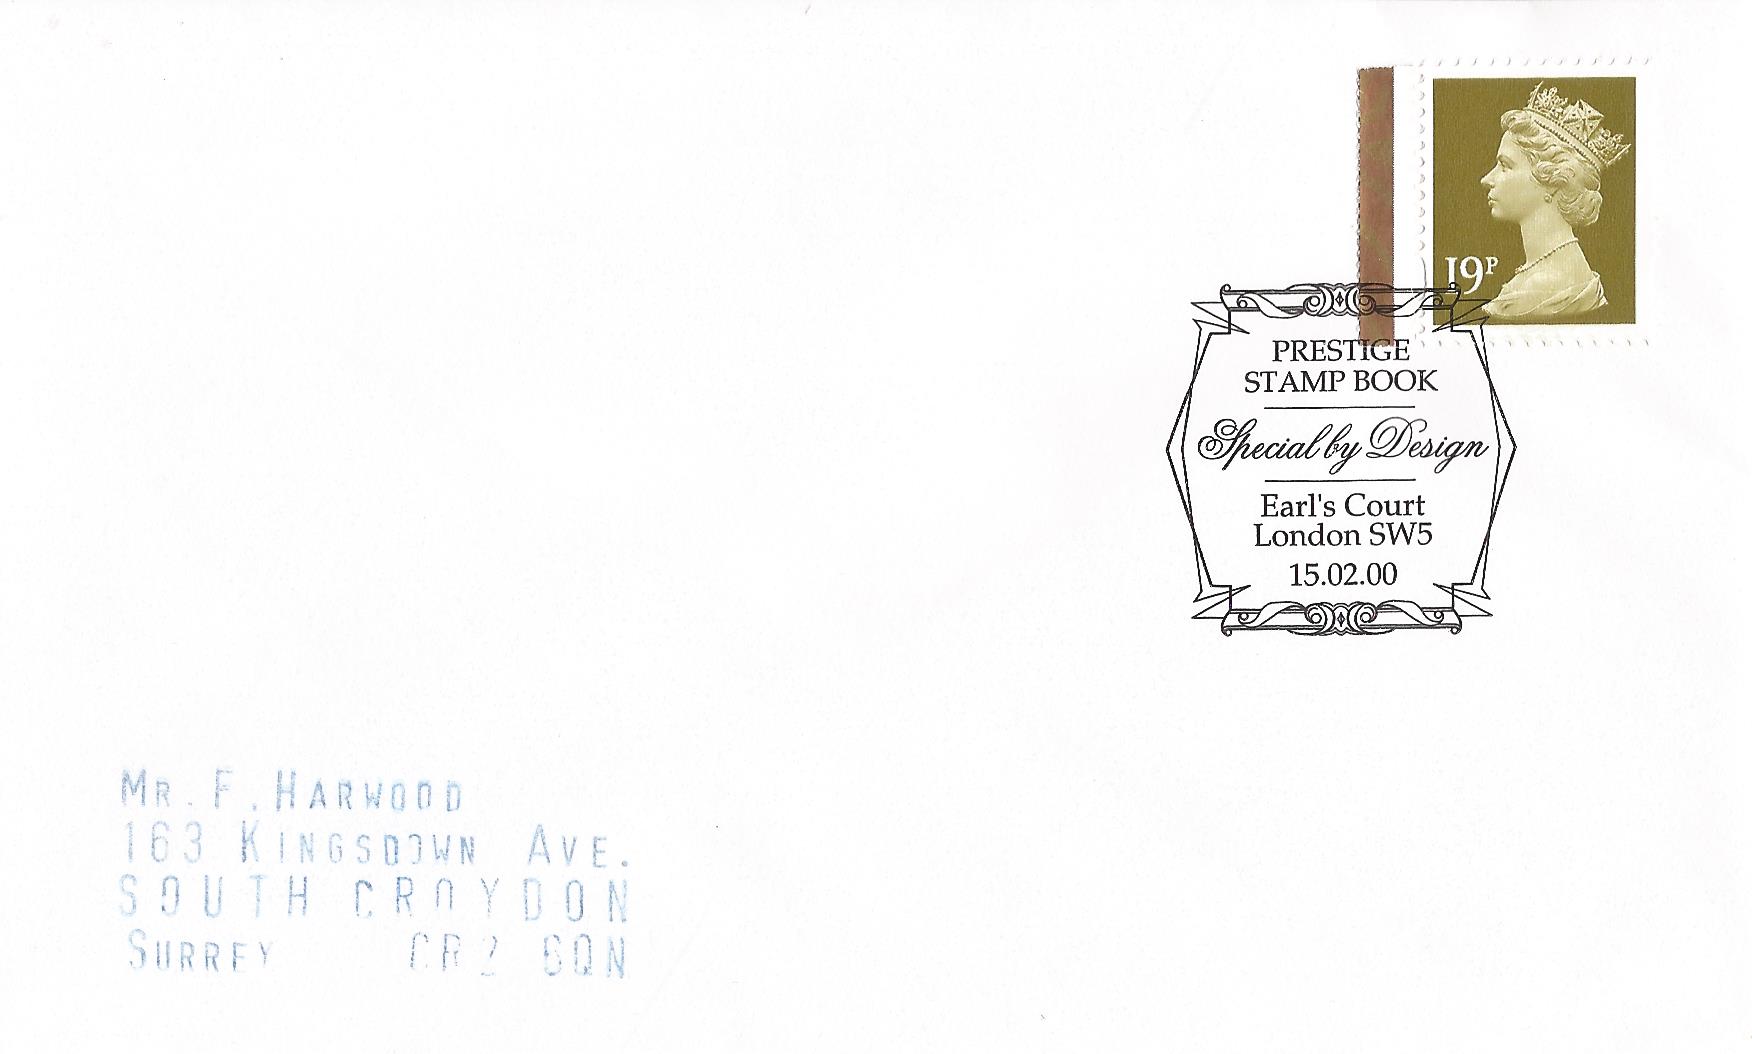 19P
PRESTIGE
STAMP BOOK
Special by Design
Earl's Court
London SW5
15.02.00
MR. F. HARWOOD
163 KINGSDOWN AVE.
SOUTH CROYDON
SURREY CR2 6QN